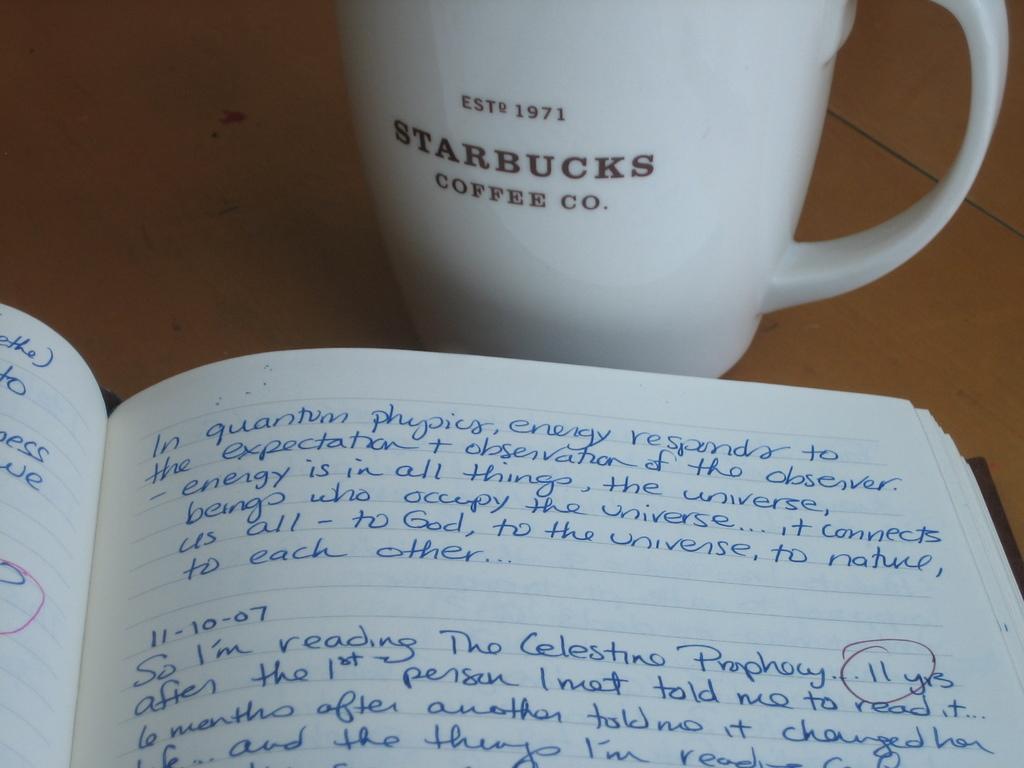 ESTD 1971
STARBUCKS
COFFEE CO.
to
ness
we
In quantum physics, energy responds to
the expectation + observation of the observer.
- energy is in all things, the universe,
beings who occupy the universe... it connects
us all - to God, to the universe, to nature,
to each other...
11-10-07
So I'm reading The Celestine Prophecy... 11 yrs
after the 1st person I met told me to read it...
6 months after another told me it changed her
life... and the things I'm reading